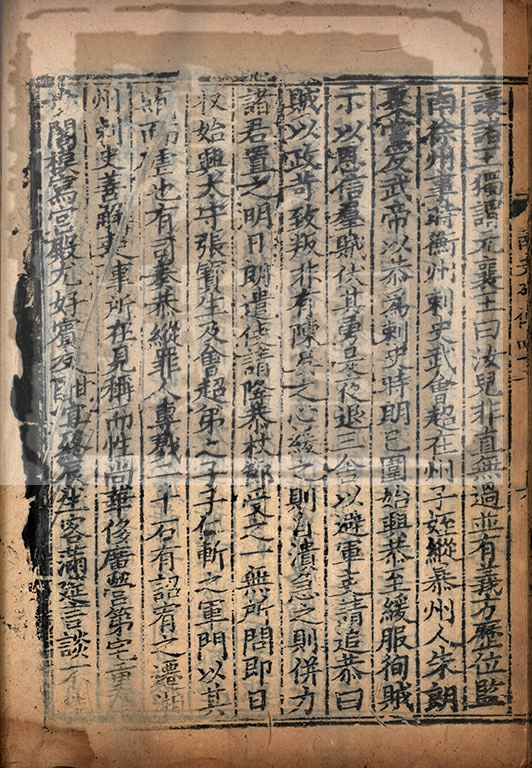 讓諸王獨謂元襄王曰汝兒非直無過並有義方歷位監
南徐州事時衡州刺史武會超在州子姪縱暴州人朱朗
聚黨反武帝以恭爲刺史時朗已圍始興恭至緩服徇賊
示以恩信羣賊伏其勇是夜退三舍以避軍吏請追恭曰
賊以政苛致叛非有陳吳之心緩之則自潰急之則併力
諸君置之明日朗遣使請降恭杖節受之一無所問即日
収始興太守張寶生及會超弟之子子仁斬之軍門以其
賄而虐也有司奏恭縱罪人專戮二千石有詔宥之遷湘
州刺史善解吏事所在見稱而性尚華侈廣營第宅重
閣模寫宮殿尤好賓友酣宴終辰坐客滿筵言談不